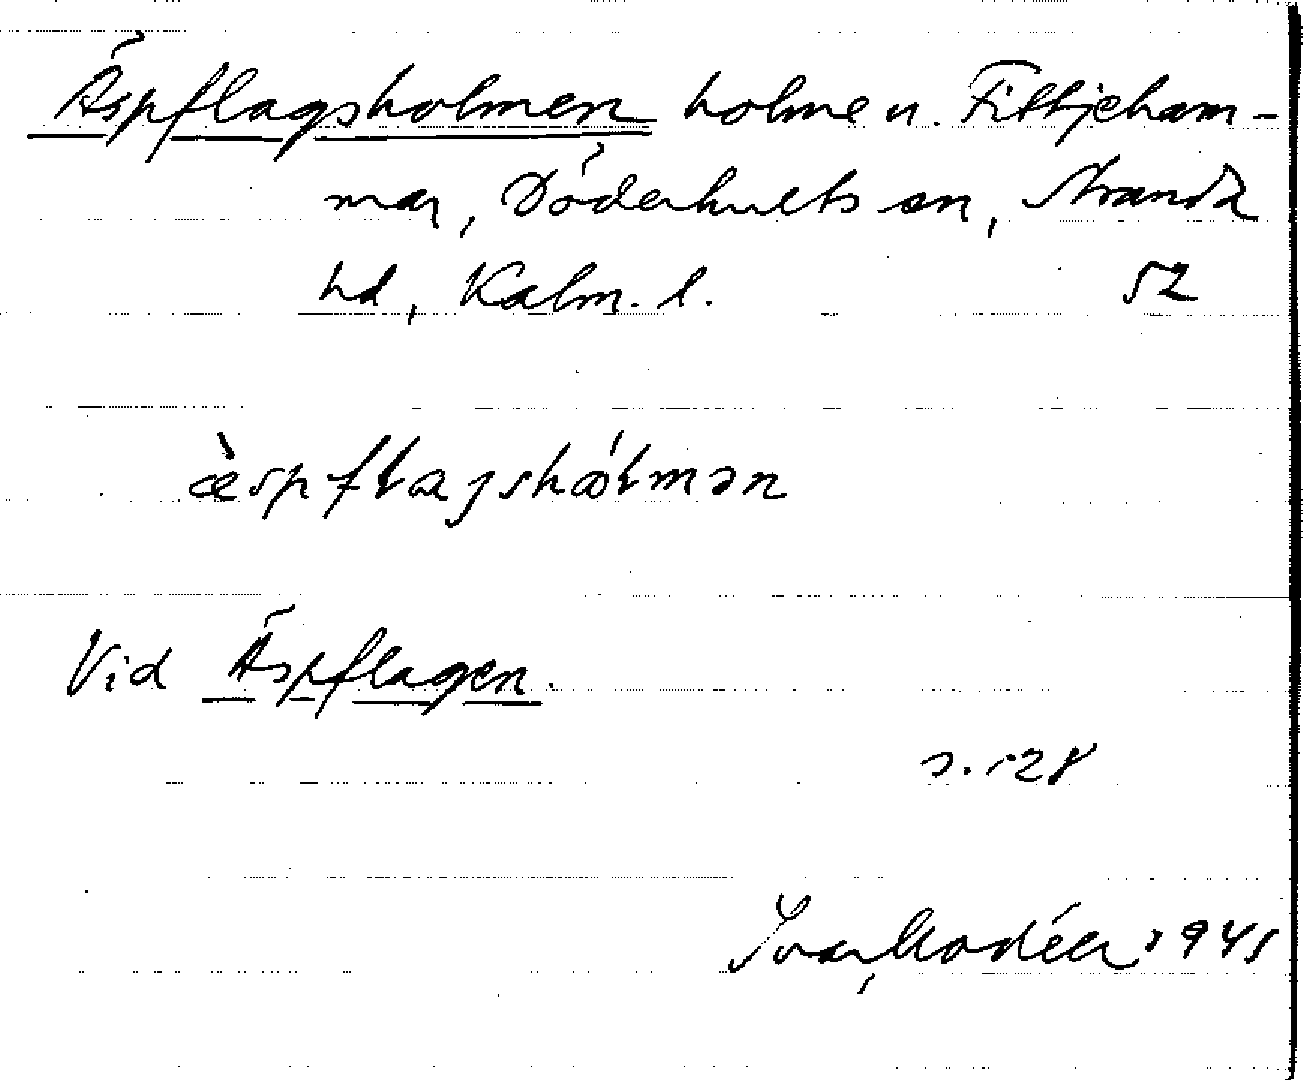 Äspflagsholmen holme n. Fittjeham-
mar, Döderhults sn, Stranda
hd, Kalm. l. 52
æ̀spflagshólmən
Vid Äspflagen.
s. 128
Ivar Modéer 1941